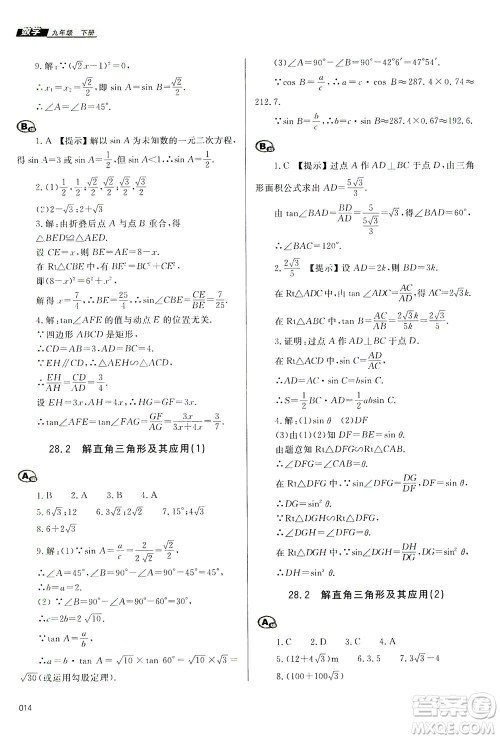 数学 九年级 下册
9.解：∵(√2x-1)²=0，
∴x=√2/2.即 sin A=√2/2.
∴∠A=∠B=45°.
B
1.A 【提示】解以 sin A 为未知数的一元二次方程，
得 sin A=1/2. 但 sin A<1, ∴sin A=1/2.
2.(1)1/2, √2/2, √2/2, 1/2.
(2)<√3，√3.
3.解：由折叠后点 A 与点 B 重合，得
△BED≌△AED.
设 CE=x，则 BE=AE=8-x.
在 Rt△BCE 中，有 BE²=BC²+CE².
即(8-x)²=6²+x².
解得 x=7/4. ∴BE=25/4. ∴sin∠CBE=CE/BE=7/25.
4.解：tan∠AFE 的值与动点 E 的位置无关.
∵四边形 ABCD 是矩形，
∴CD=4，AD=3.
∵EH∥CD，∴△AEH∽△ACD.
∴EH/AH=CD/AD=4/3.
设 EH=4x，则 AH=3x，∴HG=GF=4x.
∴tan∠AFE=tan∠FAG=GF/AG=4x/(3x+4x)=4/7.
28.2 解直角三角形及其应用(1)
A
1.C 2.D 3.A 4.A
5.6√3 6.3√2 7.15° √3
8.6+2√3
9.解：(1)∵sin A=a/c=2/(2√2)=√2/2，
∴∠A=45°. ∴∠B=90°-∠A=90°-45°=45°.
∴b=a=2.
(2)∵∠B=90°-∠A=90°-60°=30°，
∴c=2b=2√10.
∵tan A=a/b，
∴a=b×tan A=√10×tan 60°=√10×√3=
√30(或运用勾股定理).
(3)∠B=90°-∠A=90°-42°6′=47°54′.
∵cos B=a/c，∴a=c·cos B≈287.4×0.74≈
212.7.
∵sin B=b/c，∴b=c·sin B≈287.4×0.67≈192.6.
B
1.C 【提示】过点 A 作 AD⊥BC 于 D，由三角
形面积公式求出 AD=5√3/3.
由 tan∠BAD=BD/AD=5/(5√3/3)=√3，得
∠BAD=60°.
∴∠BAC=120°.
2.2√3/5 【提示】设 AD=2k，则 BD=5k.
在 Rt△ADC 中，AC=AD/cos 30°=2k/(√3/2)=4√3/3k.
在 Rt△ABC 中，tan B=AC/AB=(4√3/3k)/(…k)=2√3/5.
3.证明：过点 C 作 CD⊥AB 于 D.
在 Rt△ADC 中，∵sin A=CD/AC，
∴CD=AC·sin A.
∴S=1/2AB·CD=1/2bc·sin A.
4.解：(1)2 (2)DG DF
(3)∵DF=BD·sin θ，∴DF=sin θ.
由题意知∠DFG=θ.
在 Rt△DFG 中，sin θ=DG/DF，
∴DG=DF·sin θ=sin²θ.
∵Rt△DGH∽Rt△DFG，
∴∠DGH=∠DFG=θ.
在 Rt△DGH 中，sin θ=DH/DG，
∴DH=DG·sin θ=sin³θ.
28.2 解直角三角形及其应用(2)
A
1.C 2.D 3.A 4.4√3
5.(12+4√3)m 6.30√3 7.5.1
8.(100+100√3)
014
答案圈
MXQE.COM